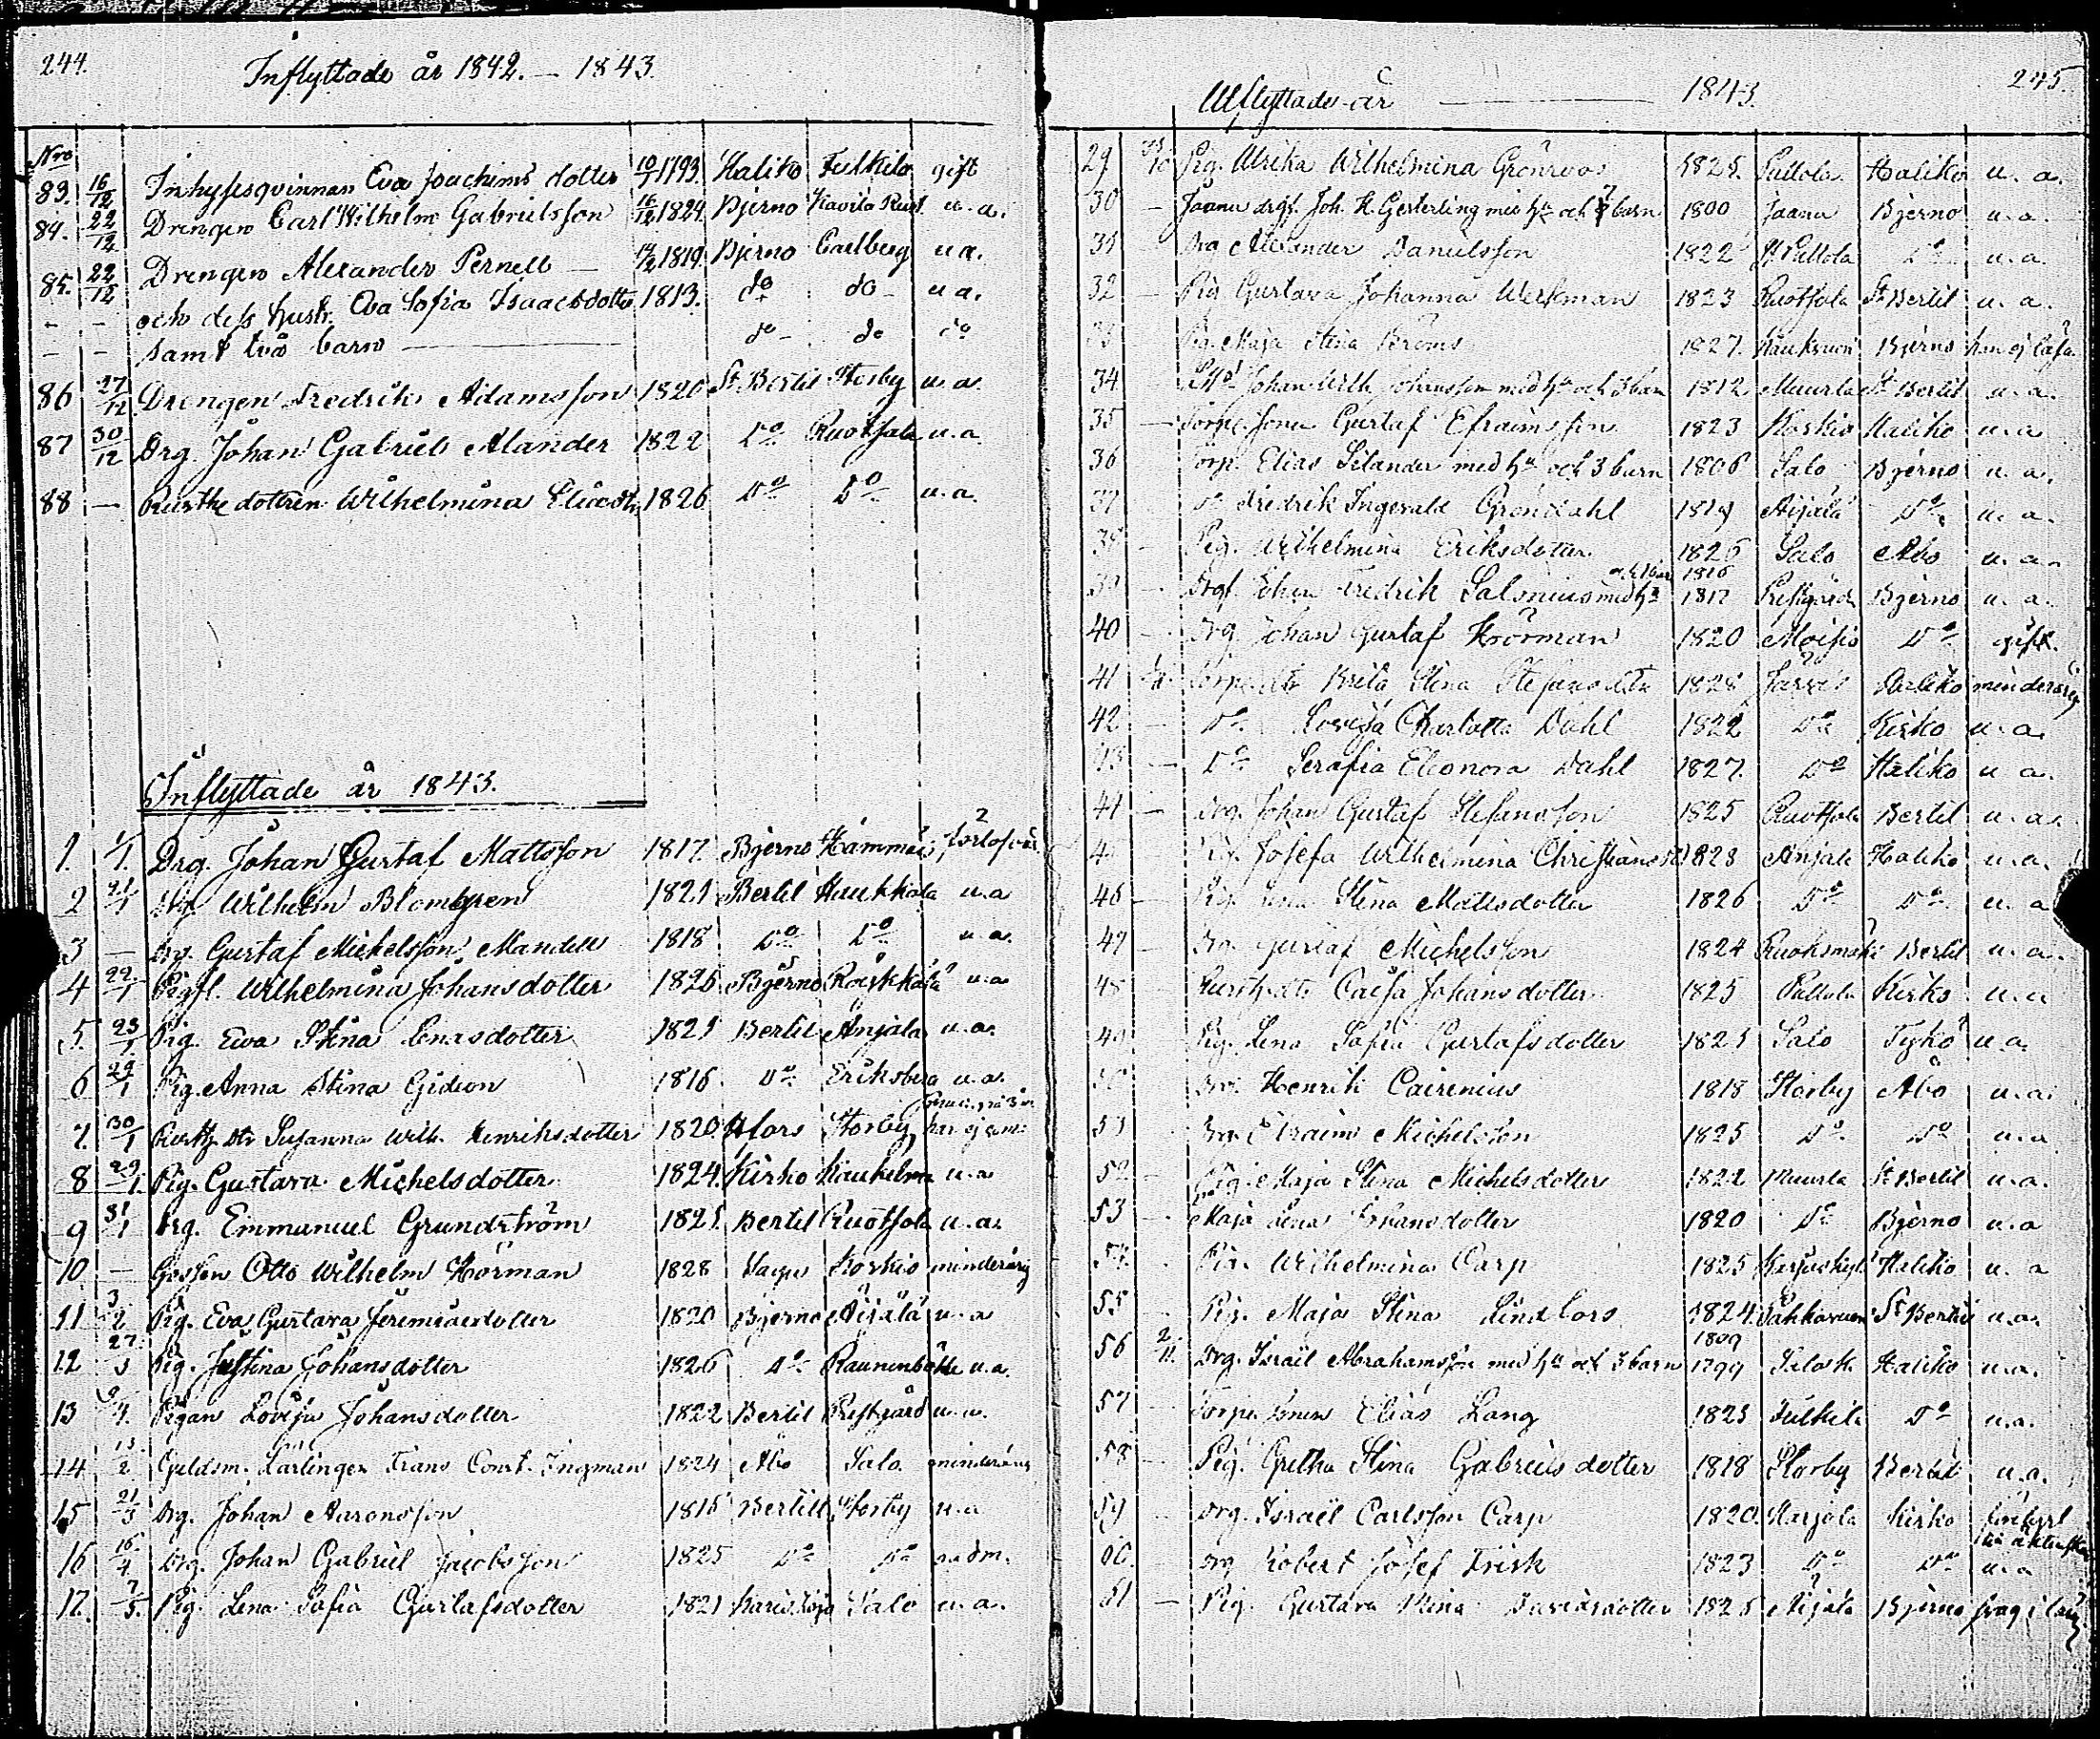 244.
Inflyttade år 1842. — 1843.
Nro
83. 16/12 Inhysesqvinnan Eva Joachims dotter 10/7 1793. Haliko Fulkila gift
84. 22/12 Drengen Carl Wilhelm Gabrielsson 16/12 1824. Bjerno Kavila Rust. u. a.
85. 22/12 Drengen Alexander Pernell — 1819. Bjerno Carlberg u a.
- - och dess hustr. Eva Sofia Isaacsdotter 1813. do do - u a.
- - samt två barn — do - do do
86 27/12 Drengen Fredrik Adamsson 1820 St. Bertil Storby u. a.
87 30/12 Drg. Johan Gabriel Alander 1822 Do Ruotsala u. a.
88 — Rusthe dottren Wilhelmina 1826 Do Do u. a.
Inflyttade år 1843.
1. 1/1. Drg. Johan Gustaf Mattsson 1817. Bjerno
2 21/1 Drg. Wilhelm Blomgren 1821 Bertil Haukkala u. a
3 — Drg. Gustaf Michelsson Mandell 1818 Do Do u. a.
4 22/1 Wilhelmina Johansdotter 1826 Bjerno u. a
5. 23/1 Pig. Eva Stina Enasdotter 1821 Bertil Anjala u. a.
6 29/1 Pig. Anna Stina Gideon 1816. Do Eriksberg u. a.
7. 30/1 Rusth. dtr Susanna Wilh. Henriksdotter 1820. Storby har ej
8 29/1. Pig. Gustava Michelsdotter 1824. Kisko u. a
9 31/1 Drg. Emmanuel Grundström 1821. Bertil Ruotsola u. a.
10 — Gossen Otto Wilhelm Hörman 1828 Koskio minderårig
11 3/2 Pig. Eva Gustava Jeremiaedotter 1820 Bjerno Aijälä u. a
12 27/3 Pig. Justina Johansdotter 1826 Do u. a.
13 9/4. Pigan Lovisa Johansdotter 1822 Bertil Prestgård u. a.
14 13/2 Guldsm. Lärlingen Frans Const. Ingman 1824 Åbo Salo minderårig
15 21/3 Drg. Johan Aaronsson 1815 Bertill Storby u. a
16 16/4 Drg. Johan Gabriel Jacobsson 1825 Do Do
17. 7/5. Pig. Lena Sofia Gustafsdotter 1821 Karislojo Salo u. a.
245.
Utflyttade år — 1843.
29 Pig. Ulrika Wilhelmina Grönroos 1825. Pullola Haliko u. a.
30 — Joh. H. Gesterling med hu och barn 1800 Jaanu Bjerno u. a.
31 Drg Alexander Danielsson 1822 Do u. a.
32 — Pig Gustava Johanna Werkman 1823 Ruotsola St Bertil u. a.
33 — Pig. Maja Stina Broms 1827. Bjerno kan ej läsa.
34 Johan Wilh Johansson med hu och 3 barn 1812 Muurla St Bertil u. a.
35 — Torpe. sonen Gustaf Efraimsson 1823 Koskis Haliko u. a
36 Torp. Elias Selander med hu och 3 barn 1806 Salo Bjerno u. a.
37 Do Fredrik Ingevald Gröndahl 1819 Aijälä Do u. a.
38 — Pig. Wilhelmina Eriksdotter 1826 Salo Åbo u. a.
39 — Johan Fredrik Salonius med hu och 1 bar 1816 1817 Prestgård Bjerno u. a.
40 — Drg. Johan Gustaf Hoorman 1820 Moisio Do gift.
41 Brita Stina Stefansdotr 1828 Haliko minderårig
42 — Do Lovisa Charlotta Dahl 1822 Do Kisko u. a.
43 — Do Serafia Eleonora Dahl 1827. Do Haliko u. a.
44 — Drg. Johan Gustaf Stefansson 1825 Ruotsala Bertil u. a.
45 Pig. Josefa Wilhelmina 1828 Anjala Haliko u. a.
46 — Pig. Stina Mattsdotter 1826 Do Do u. a
47 — Drg. Gustaf Michelsson 1824 Ruohomäki Bertil u. a.
48 — Caisa Johansdotter 1825 Pullola Kisko u. a
49 Pig. Lena Sofia Gustafsdotter 1821 Salo Tykö u. a.
50 Drg. Henrik Cairenius 1818 Storby Åbo u. a.
51 Drg. Efraim Michelsson 1825 Do Do u. a
52 — Pig. Maja Stina Michelsdotter 1822 Muurla St Bertil u. a.
53 — Maja Lena Johansdotter 1820 Do Bjerno u. a
54. Pig. Wilhelmina Carp 1825 Haliko u. a
55 Pig. Maja Stina Lindfors 1824. St Bertil u. a.
56 2/11. Drg. Israël Abrahamsson med hu och 3 barn 1809 1799 Haliko u. a.
57 Torpe. sonen Elias Lang 1821 Fulkila Do u. a.
58 — Pig. Gretha Stina Gabriels dotter 1818 Storby Bertil u. a.
59 Drg. Israël Carlsson Carp 1820. Marjola Kisko
60. Drg Robert Josef Frisk 1823 Do Do u. a
61 — Pig. Gustava Stina Davidsdotter 1825 Aijälä Bjerno